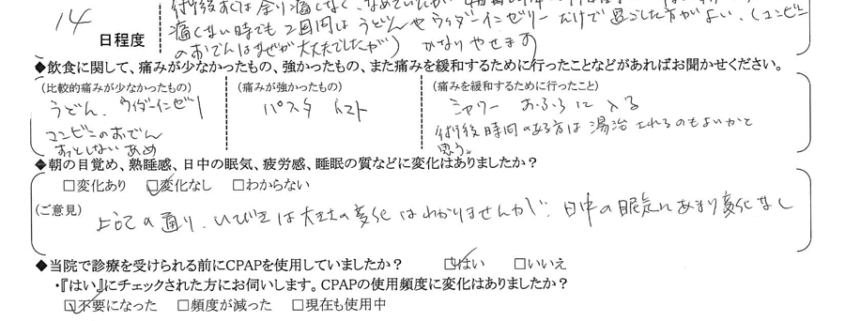 痛くない時でも2週間はうどんやウィダーインゼリーだけで過ごした方がよい。(コンビニ
14
日程度
のおでんはなぜか大丈夫でしたが) かなりやせます
◆飲食に関して、痛みが少なかったもの、強かったもの、また痛みを緩和するために行ったことなどがあればお聞かせください。
(比較的痛みが少なかったもの) (痛みが強かったもの) (痛みを緩和するために行ったこと)
うどん、ウイダーインゼリー パスタ トマト シャワー おふろに入る
コンビニのおでん 術後時間のある方は湯治されるのもよいかと
あめ 思う。
◆朝の目覚め、熟睡感、日中の眠気、疲労感、睡眠の質などに変化はありましたか?
□変化あり ☑変化なし □わからない
(ご意見) 上記の通り、いびきは の変化はわかりませんが、日中の眠気にあまり変化なし
◆当院で診療を受けられる前にCPAPを使用していましたか? ☑はい □いいえ
・『はい』にチェックされた方にお伺いします。CPAPの使用頻度に変化はありましたか?
☑不要になった □頻度が減った □現在も使用中